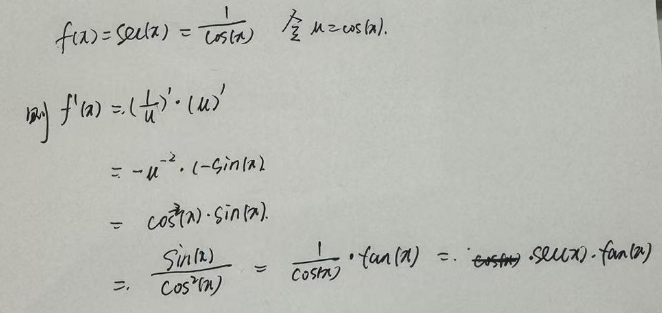 f(x) = sec(x) = 1/cos(x) 令 u = cos(x).
则 f'(x) = (1/u)' · (u)'
= -u^-2 · (-sin(x)
= cos^-2(x) · sin(x).
= sin(x)/cos²(x) = 1/cos(x) · tan(x) = · sec(x) · tan(x)